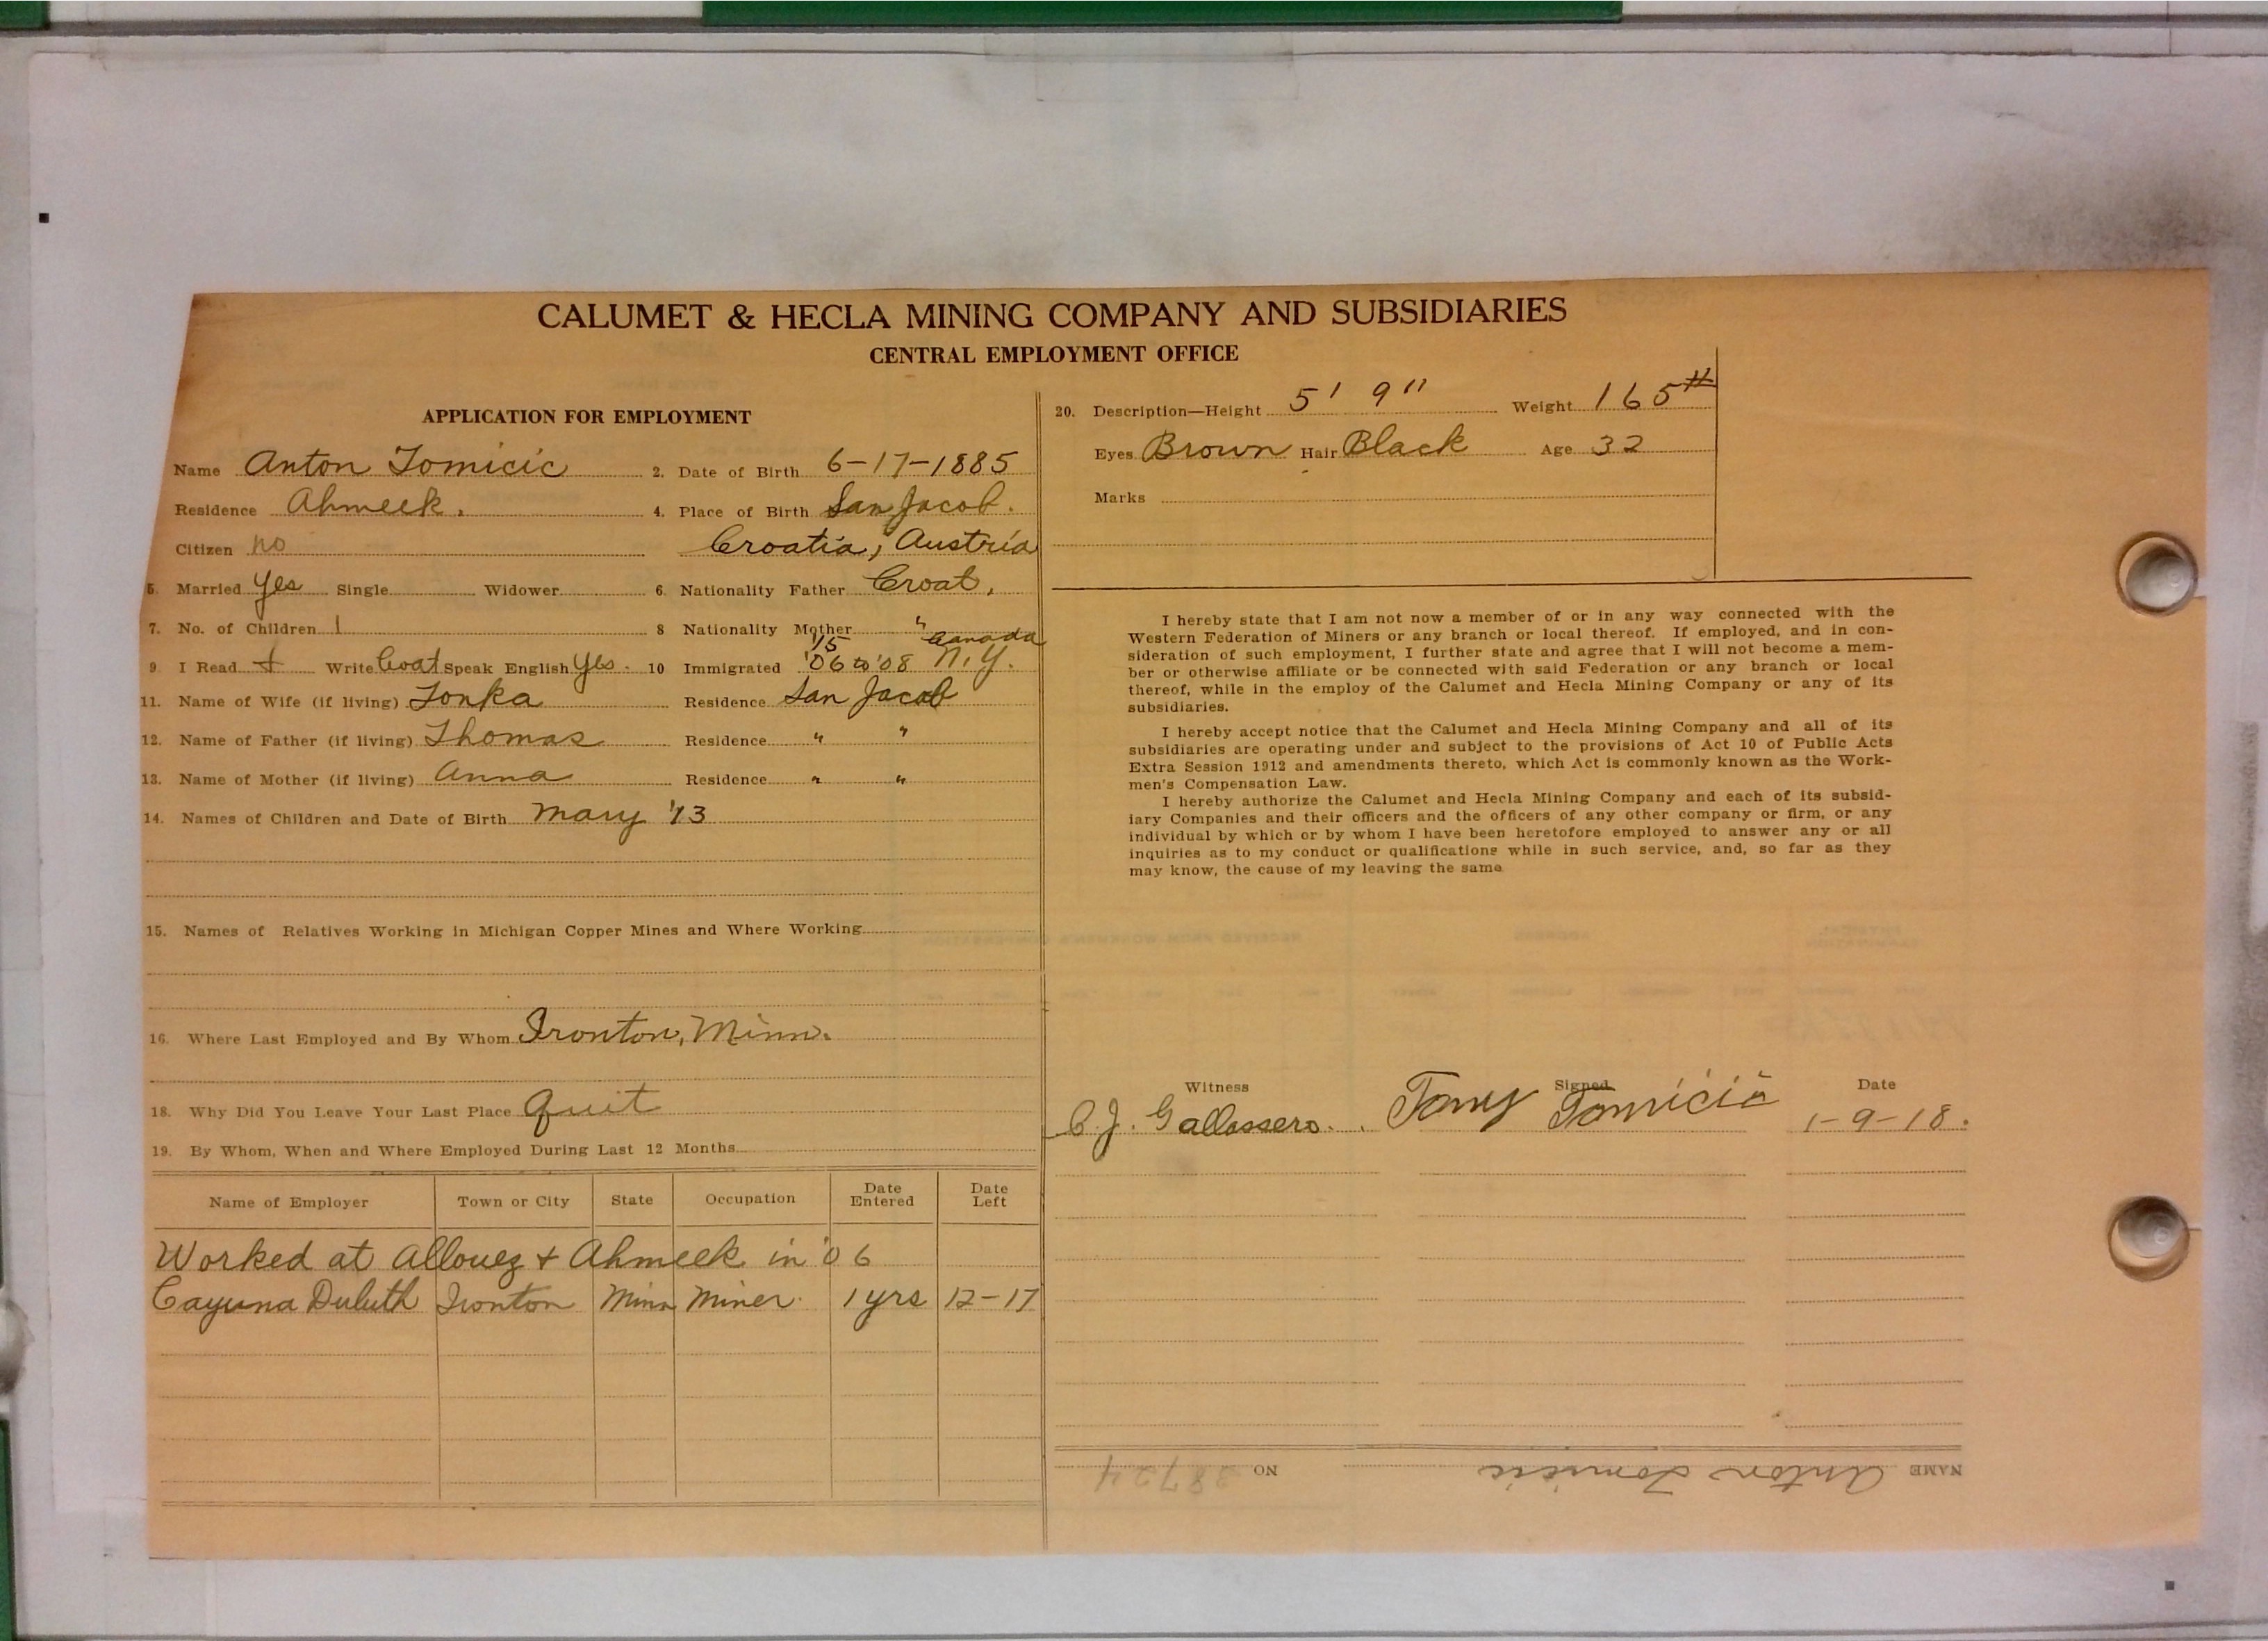 CALUMET & HECLA MINING COMPANY AND SUBSIDIARIES
CENTRAL EMPLOYMENT OFFICE
APPLICATION FOR EMPLOYMENT
Name Anton Tomicic 2. Date of Birth 6-17-1885
Residence Ahmeek. 4. Place of Birth San Jacob.
Citizen no Croatia, Austria
5. Married Yes Single Widower 6. Nationality Father Croat,
7. No. of Children 1 8 Nationality Mother "
'15 Canada
9 I Read + Write Coat Speak English Yes. 10 Immigrated '06 to '08 N.Y.
11. Name of Wife (if living) Tonka Residence San Jacob
12. Name of Father (if living) Thomas Residence " "
13. Name of Mother (if living) Anna Residence " "
14. Names of Children and Date of Birth Mary '13
15. Names of Relatives Working in Michigan Copper Mines and Where Working
16. Where Last Employed and By Whom Ironton, Minn.
18. Why Did You Leave Your Last Place Quit
19. By Whom, When and Where Employed During Last 12 Months
Name of Employer Town or City State Occupation Date Entered Date Left
Worked at Allouez + Ahmeek in '06
Cayuna Duluth Ironton Minn Miner 1 yrs 12-17
20. Description—Height 5' 9" Weight 165#
Eyes Brown Hair Black Age 32
Marks
I hereby state that I am not now a member of or in any way connected with the
Western Federation of Miners or any branch or local thereof. If employed, and in con-
sideration of such employment, I further state and agree that I will not become a mem-
ber or otherwise affiliate or be connected with said Federation or any branch or local
thereof, while in the employ of the Calumet and Hecla Mining Company or any of its
subsidiaries.
I hereby accept notice that the Calumet and Hecla Mining Company and all of its
subsidiaries are operating under and subject to the provisions of Act 10 of Public Acts
Extra Session 1912 and amendments thereto, which Act is commonly known as the Work-
men's Compensation Law.
I hereby authorize the Calumet and Hecla Mining Company and each of its subsid-
iary Companies and their officers and the officers of any other company or firm, or any
individual by which or by whom I have been heretofore employed to answer any or all
inquiries as to my conduct or qualifications while in such service, and, so far as they
may know, the cause of my leaving the same
Witness Signed Date
C. J. Gallossero. Tony Tomicic 1-9-18.
NAME Anton Tomicic NO 38724